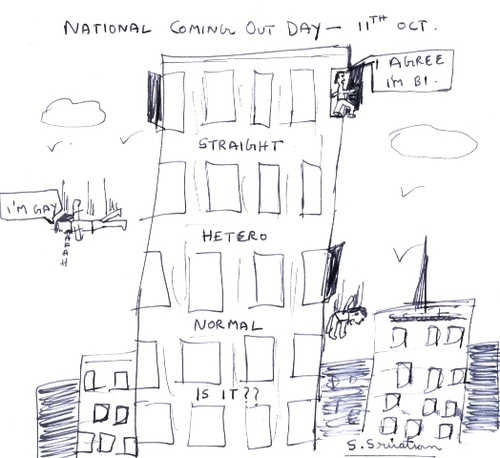 NATIONAL COMING OUT DAY — 11TH OCT.
I AGREE
I'M BI.
STRAIGHT
I'M GAY
AAAH
HETERO
NORMAL
IS IT??